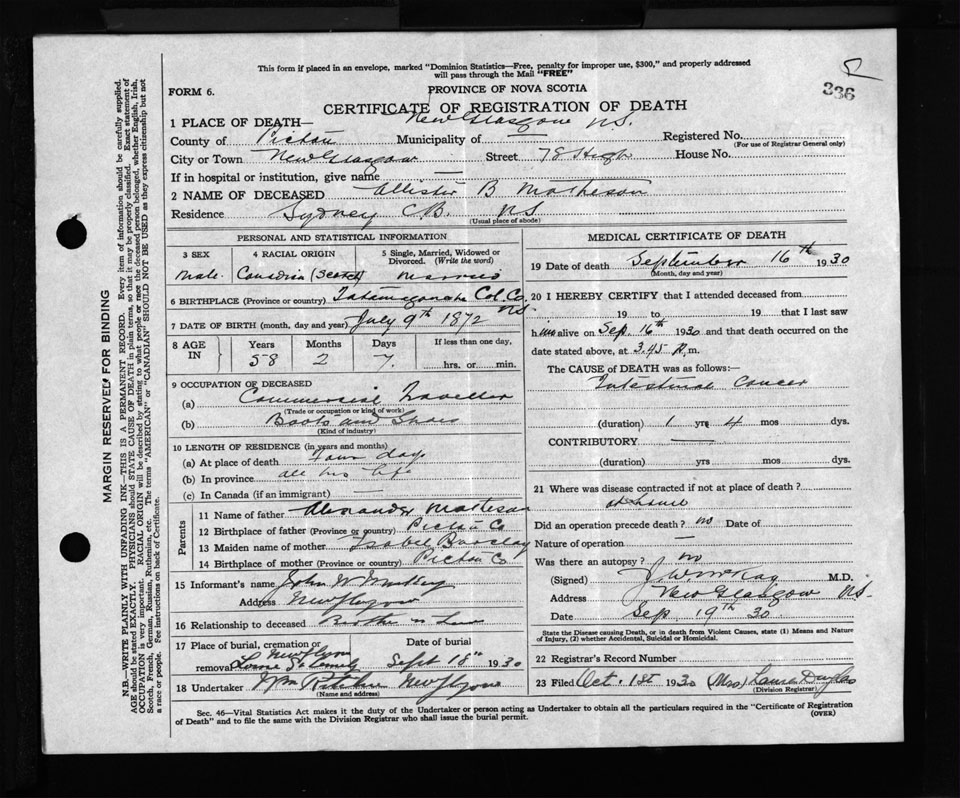 This form if placed in an envelope, marked "Dominion Statistics—Free, penalty for improper use, $300," and properly addressed
will pass through the Mail "FREE"
336
FORM 6.
PROVINCE OF NOVA SCOTIA
CERTIFICATE OF REGISTRATION OF DEATH
1 PLACE OF DEATH— New Glasgow N.S.
County of Pictou Municipality of — Registered No.
(For use of Registrar General only)
City or Town New Glasgow Street 78 High House No.
If in hospital or institution, give name —
2 NAME OF DECEASED Allister B Matheson
Residence Sydney C.B. NS
(Usual place of abode)
PERSONAL AND STATISTICAL INFORMATION
3 SEX
4 RACIAL ORIGIN
5 Single, Married, Widowed or Divorced. (Write the word)
Male Canadian (Scotch) Married
6 BIRTHPLACE (Province or country) Tatamagouche Col. Co. NS.
7 DATE OF BIRTH (month, day and year) July 9th 1872
8 AGE IN
Years Months Days If less than one day,
58 2 7 hrs. or min.
9 OCCUPATION OF DECEASED
(a) Commercial Traveller
(Trade or occupation or kind of work)
(b) Boots and Shoes
(Kind of industry)
10 LENGTH OF RESIDENCE (in years and months)
(a) At place of death Four days
(b) In province all his life
(c) In Canada (if an immigrant) —
Parents
11 Name of father Alexander Matheson
12 Birthplace of father (Province or country) Pictou Co
13 Maiden name of mother Isabel Barclay
14 Birthplace of mother (Province or country) Pictou Co
15 Informant's name John W
Address New Glasgow
16 Relationship to deceased Brother in Law
17 Place of burial, cremation or removal Date of burial
New Glasgow
Sept 18th 1930
18 Undertaker Wm New Glasgow
(Name and address)
MEDICAL CERTIFICATE OF DEATH
19 Date of death September 16th 1930
(Month, day and year)
20 I HEREBY CERTIFY that I attended deceased from
19 to 19 that I last saw
him alive on Sep. 16th 1930 and that death occurred on the
date stated above, at 3.45 P.m.
The CAUSE of DEATH was as follows:—
Intestinal Cancer
(duration) 1 yrs 4 mos dys.
CONTRIBUTORY —
(duration) yrs mos dys.
21 Where was disease contracted if not at place of death?
at home
Did an operation precede death? no Date of
Nature of operation —
Was there an autopsy? no
(Signed) J. W. McKay M.D.
Address New Glasgow NS.
Date Sep 19th 30
State the Disease causing Death, or in death from Violent Causes, state (1) Means and
Nature of Injury, (2) whether Accidental, Suicidal or Homicidal.
22 Registrar's Record Number
23 Filed Oct. 1st 1930 (Mrs) Laura Douglas
(Division Registrar)
Sec. 46—Vital Statistics Act makes it the duty of the Undertaker or person acting as Undertaker to obtain all the particulars required in the "Certificate of Registration
of Death" and to file the same with the Division Registrar who shall issue the burial permit.
(OVER)
MARGIN RESERVED FOR BINDING
N.B.—WRITE PLAINLY WITH UNFADING INK—THIS IS A PERMANENT RECORD. Every item of information should be carefully supplied.
AGE should be stated EXACTLY. PHYSICIANS should STATE CAUSE OF DEATH in plain terms, so that it may be properly classified. Exact statement of
OCCUPATION is very important. RACIAL ORIGIN will be described by stating to what people or race the deceased person belonged, whether English, Irish,
Scotch, French, German, Russian, Ruthenian, etc. The terms "AMERICAN" or "CANADIAN" SHOULD NOT BE USED as they express citizenship but not
a race or people. See instructions on back of Certificate.